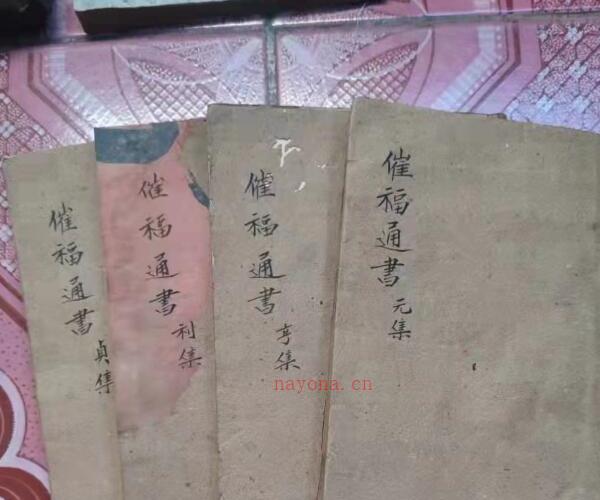 催福通書 元集
催福通書 亨集
催福通書 利集
催福通書 貞集
nayona.cn